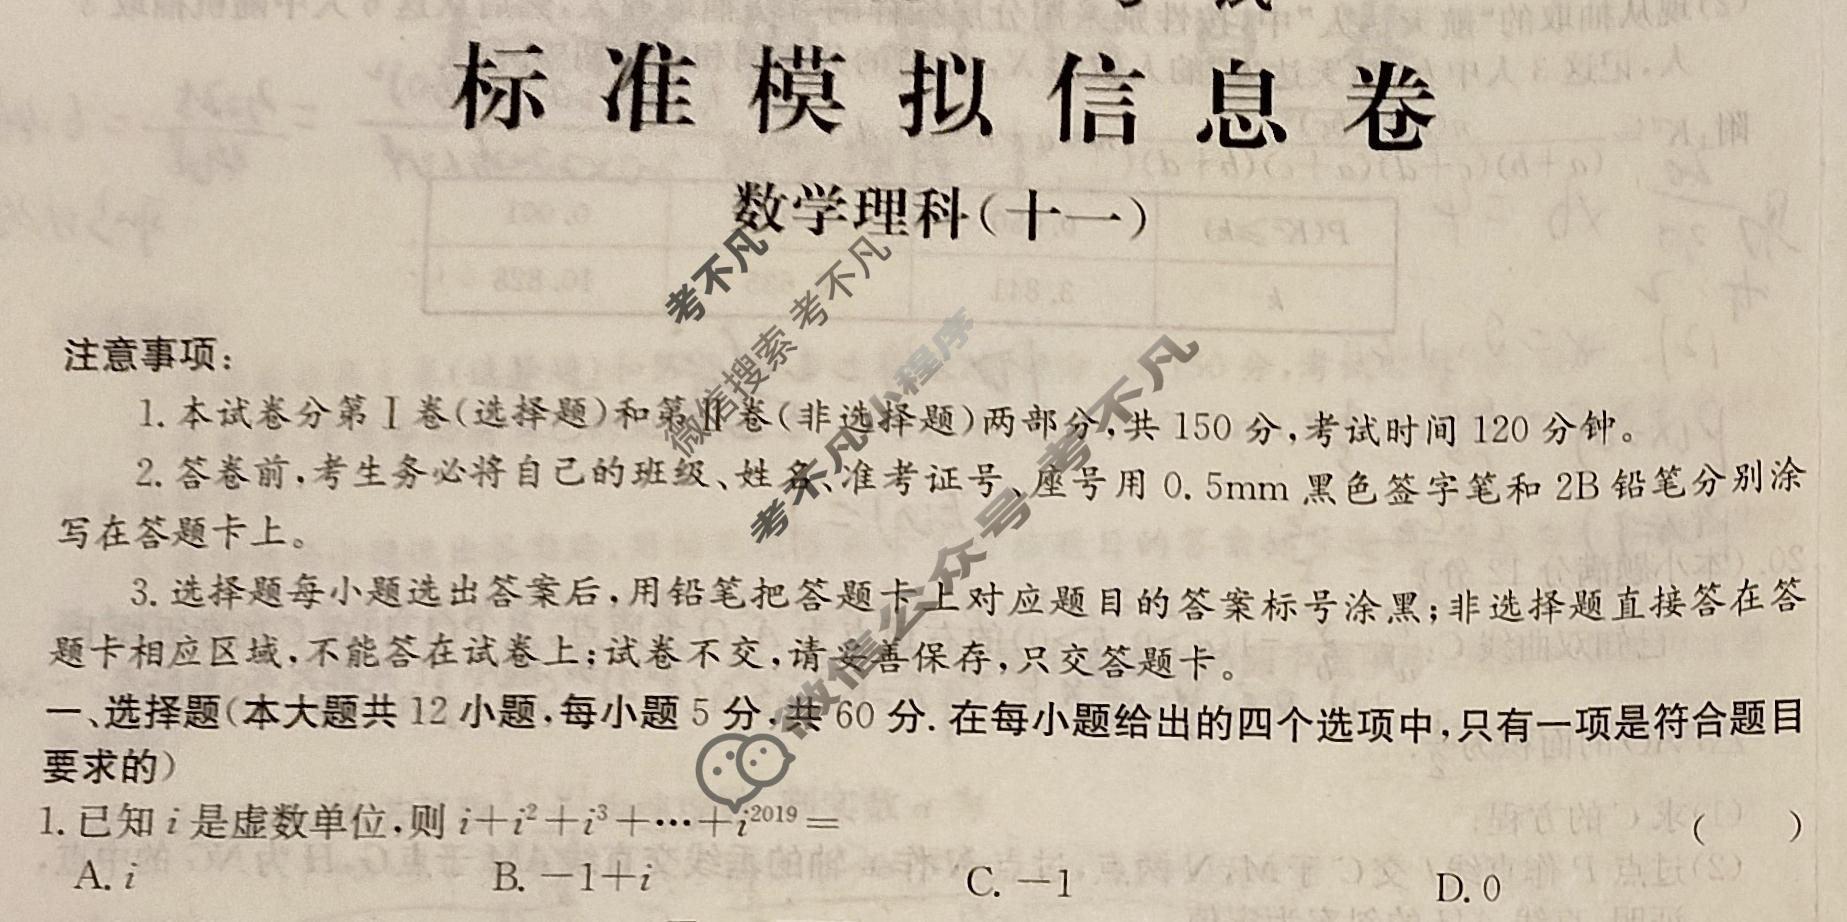 标准模拟信息卷
数学理科(十一)
注意事项:
1.本试卷分第Ⅰ卷(选择题)和第Ⅱ卷(非选择题)两部分,共150分,考试时间120分钟。
2.答卷前,考生务必将自己的班级、姓名、准考证号、座号用0.5mm黑色签字笔和2B铅笔分别涂
写在答题卡上。
3.选择题每小题选出答案后,用铅笔把答题卡上对应题目的答案标号涂黑;非选择题直接答在答
题卡相应区域,不能答在试卷上;试卷不交,请妥善保存,只交答题卡。
一、选择题(本大题共12小题,每小题5分,共60分.在每小题给出的四个选项中,只有一项是符合题目
要求的)
1.已知i是虚数单位,则i+i²+i³+⋯+i²⁰¹⁹= ( )
A. i B. −1+i C. −1 D. 0
考不凡
微信搜索 考不凡
考不凡小程序
微信公众号 考不凡